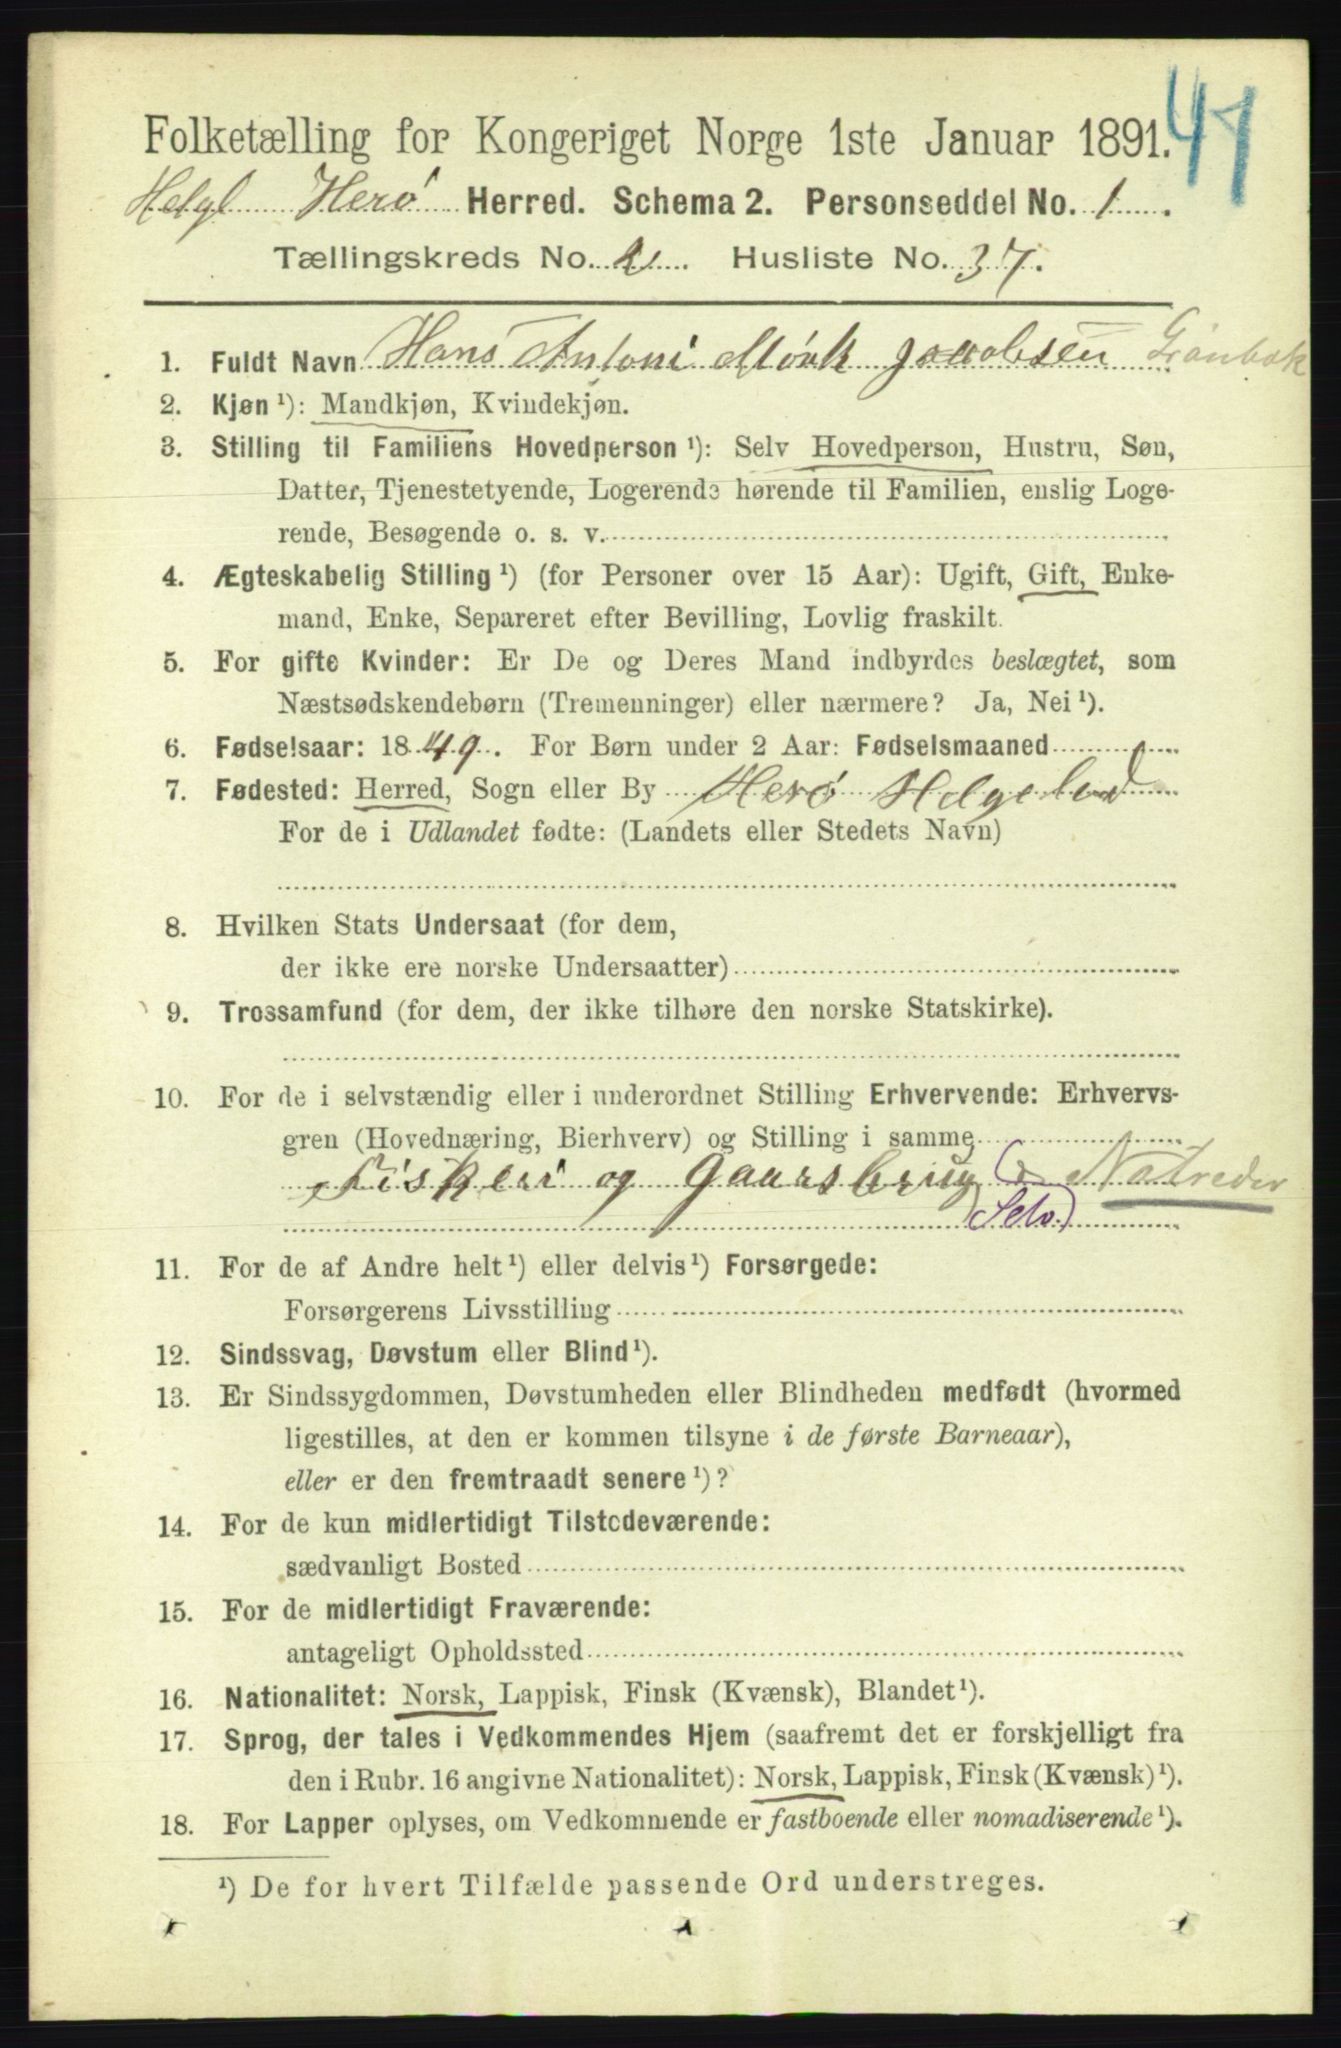 47
Folketælling for Kongeriget Norge 1ste Januar 1891.
Helgl Herø Herred. Schema 2. Personseddel No. 1.
Tællingskreds No. 2. Husliste No. 37.
1. Fuldt Navn Hans Antoni Mørk Jacobsen Grønbæk
2. Kjøn ¹): Mandkjøn, Kvindekjøn.
3. Stilling til Familiens Hovedperson ¹): Selv Hovedperson, Hustru, Søn,
Datter, Tjenestetyende, Logerende hørende til Familien, enslig Loge-
rende, Besøgende o. s. v.
4. Ægteskabelig Stilling ¹) (for Personer over 15 Aar): Ugift, Gift, Enke-
mand, Enke, Separeret efter Bevilling, Lovlig fraskilt.
5. For gifte Kvinder: Er De og Deres Mand indbyrdes beslægtet, som
Næstsødskendebørn (Tremenninger) eller nærmere? Ja, Nei ¹).
6. Fødselsaar: 1849. For Børn under 2 Aar: Fødselsmaaned
7. Fødested: Herred, Sogn eller By Herø Helgeland
For de i Udlandet fødte: (Landets eller Stedets Navn)
8. Hvilken Stats Undersaat (for dem,
der ikke ere norske Undersaatter)
9. Trossamfund (for dem, der ikke tilhøre den norske Statskirke).
10. For de i selvstændig eller i underordnet Stilling Erhvervende: Erhvervs-
gren (Hovednæring, Bierhverv) og Stilling i samme
Fiskeri og Gaarsbrug & Notreder
(Selv.)
11. For de af Andre helt ¹) eller delvis ¹) Forsørgede:
Forsørgerens Livsstilling
12. Sindssvag, Døvstum eller Blind ¹).
13. Er Sindssygdommen, Døvstumheden eller Blindheden medfødt (hvormed
ligestilles, at den er kommen tilsyne i de første Barneaar),
eller er den fremtraadt senere ¹)?
14. For de kun midlertidigt Tilstedeværende:
sædvanligt Bosted
15. For de midlertidigt Fraværende:
antageligt Opholdssted
16. Nationalitet: Norsk, Lappisk, Finsk (Kvænsk), Blandet ¹).
17. Sprog, der tales i Vedkommendes Hjem (saafremt det er forskjelligt fra
den i Rubr. 16 angivne Nationalitet): Norsk, Lappisk, Finsk (Kvænsk) ¹).
18. For Lapper oplyses, om Vedkommende er fastboende eller nomadiserende ¹).
¹) De for hvert Tilfælde passende Ord understreges.